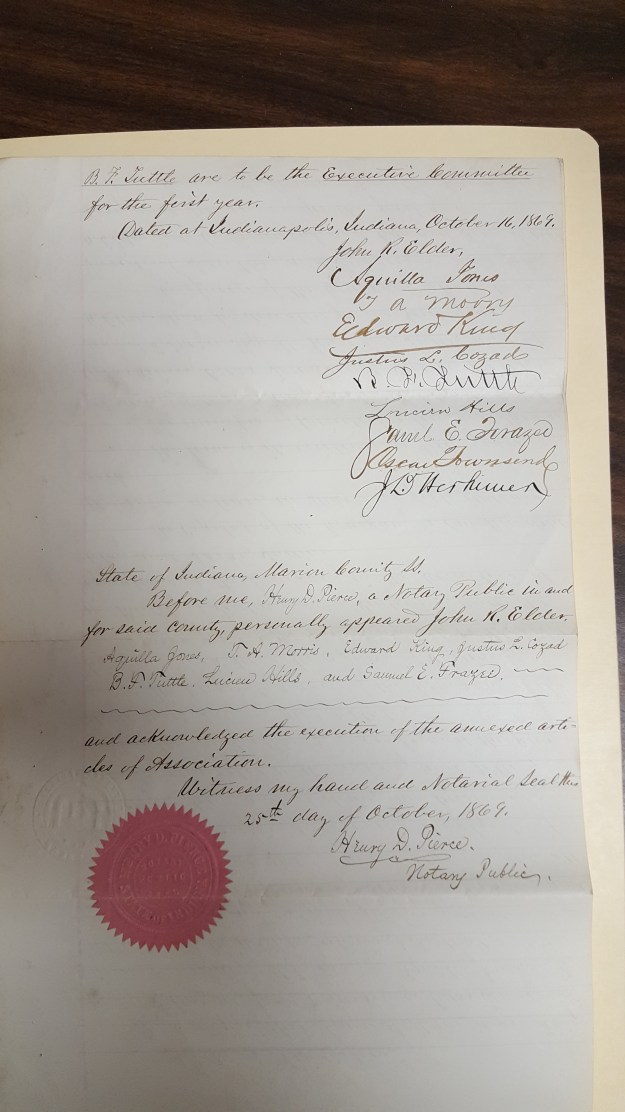 B. F. Tuttle are to be the Executive Committee
for the first year.
Dated at Indianapolis, Indiana, October 16, 1869.
John R. Elder,
Aquilla Jones
T A Morris
Edward King
Justus L. Cozad
B. F. Tuttle
Lucien Hills
Saml E. Frazed
Oscar Townsend
J D Herkimer
State of Indiana, Marion County SS.
Before me, Henry D. Pierce, a Notary Public in and
for said county, personally appeared John R. Elder,
Aquilla Jones, T. A. Morris, Edward King, Justus L. Cozad
B. F. Tuttle, Lucien Hills, and Samuel E. Frazed,
and acknowledged the execution of the annexed arti-
cles of Association.
Witness my hand and Notarial Seal this
25th day of October, 1869.
Henry D. Pierce.
Notary Public.